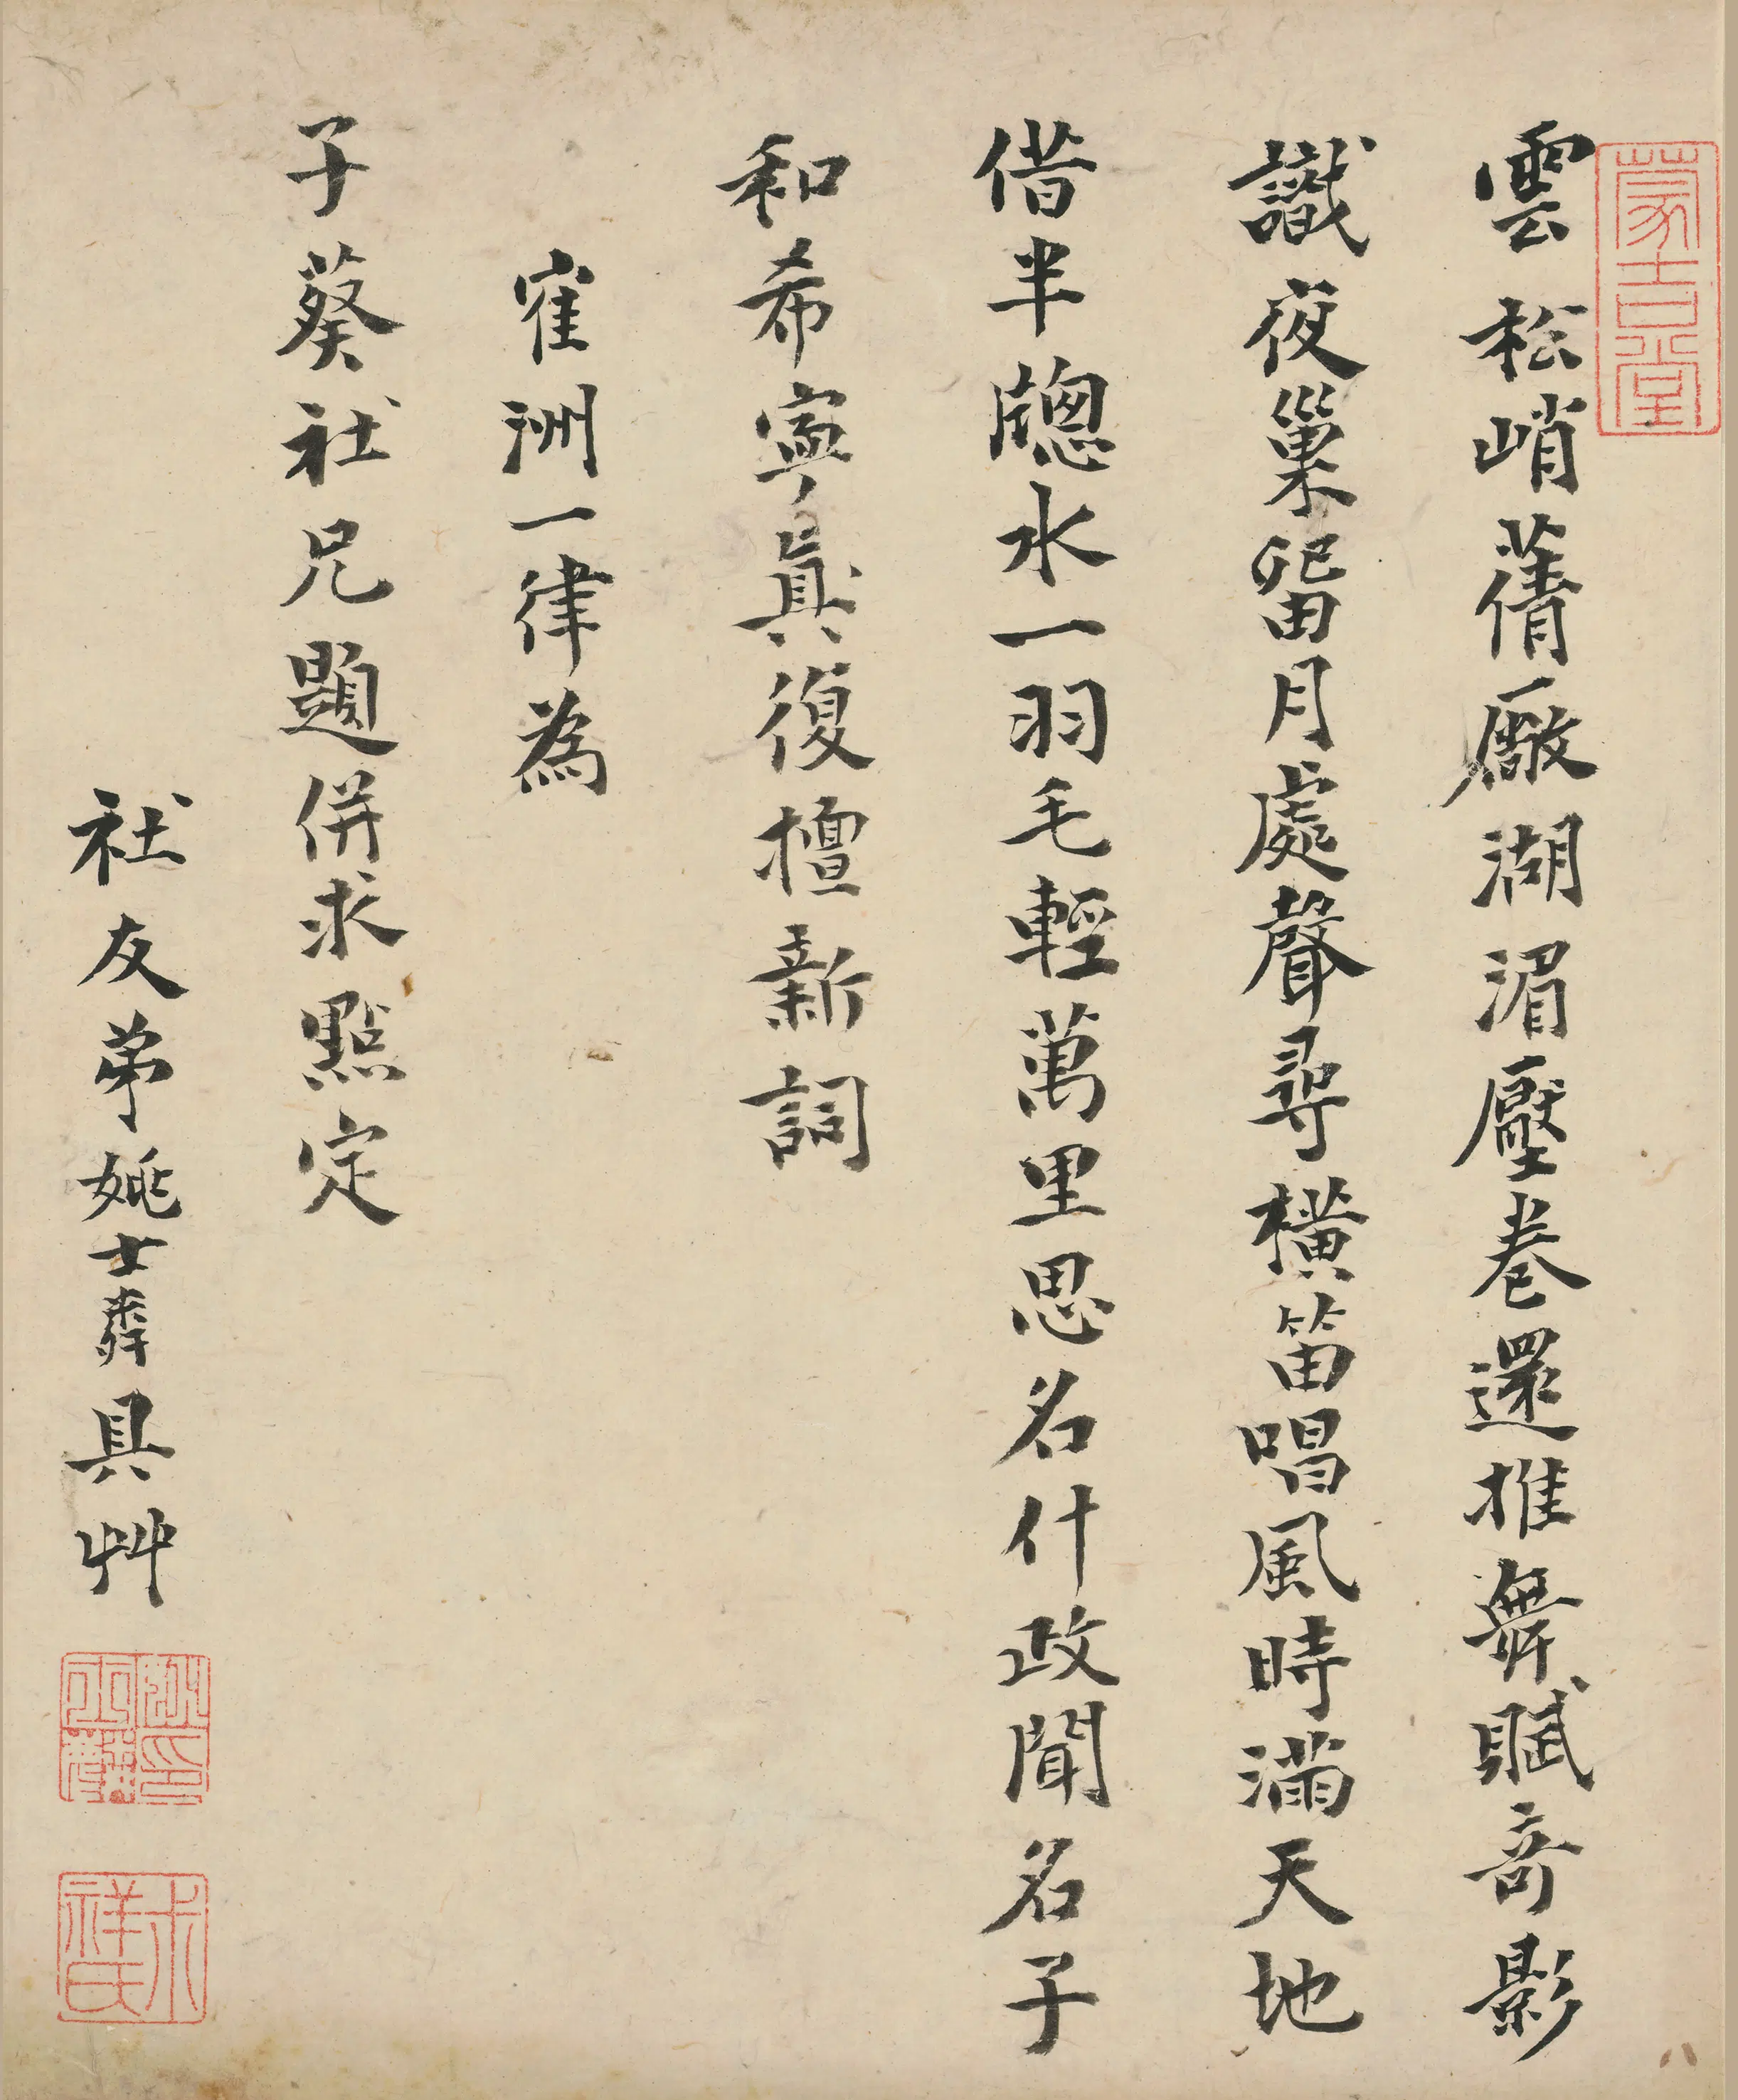 蒙吉堂
雲松峭蒨厰湖湄壓卷還推舞賦奇影
識夜巢留月處聲尋橫笛唱風時滿天地
借半牕水一羽毛輕萬里思名什政聞名子
和希寧眞復檀新詞
寉洲一律為
子葵社兄題併求點定
社友弟姚士粦具艸
姚印士粦
叔祥氏